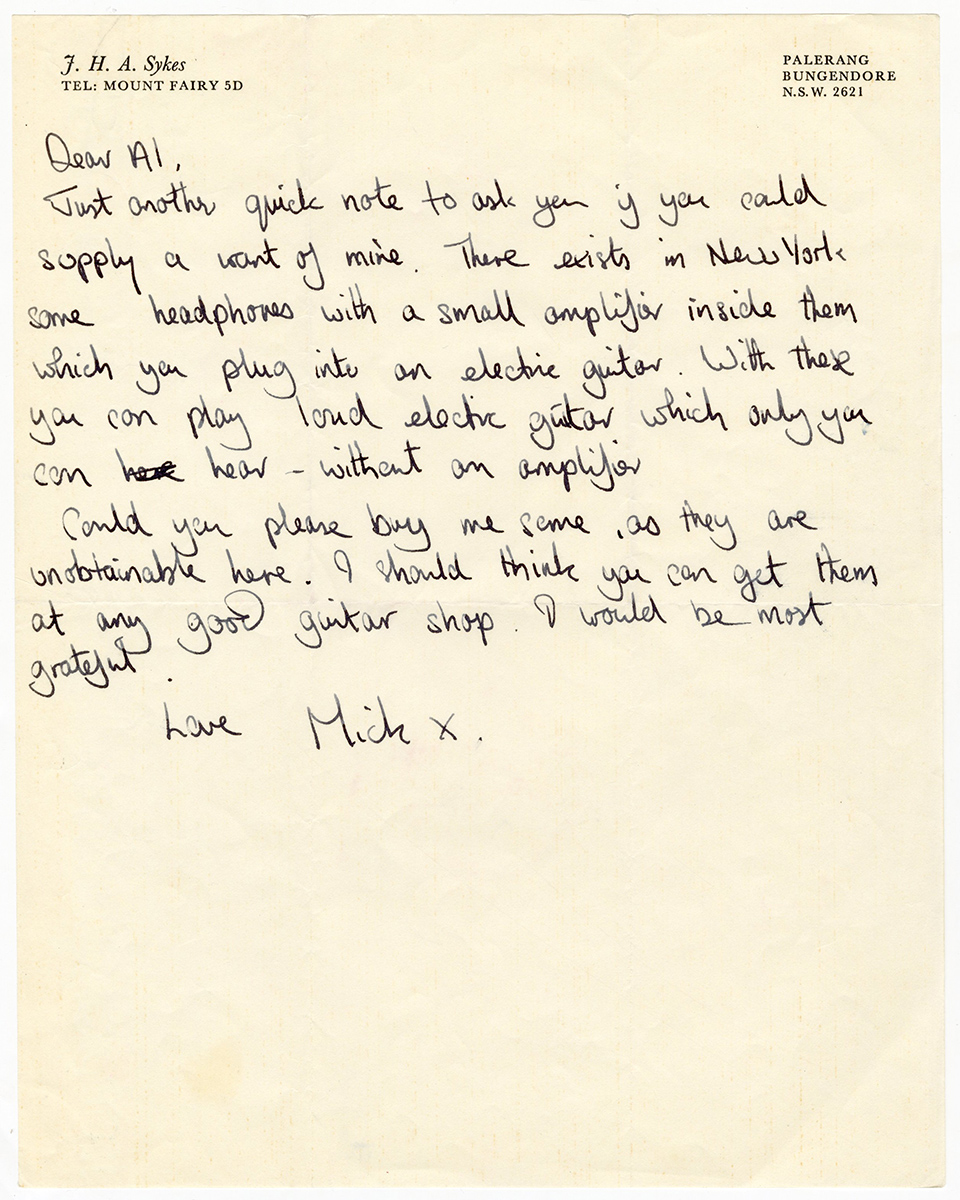 J. H. A. Sykes
TEL: MOUNT FAIRY 5D
PALERANG
BUNGENDORE
N.S.W. 2621
Dear Al,
Just another quick note to ask you if you could
supply a want of mine. There exists in New York
some headphones with a small amplifior inside them
which you plug into an electric guitar. With these
you can play loud electric guitar which only you
can hear – without an amplifior
Could you please buy me some, as they are
unobtainable here. I should think you can get them
at any good guitar shop. I would be most
grateful.
Love Mick X.